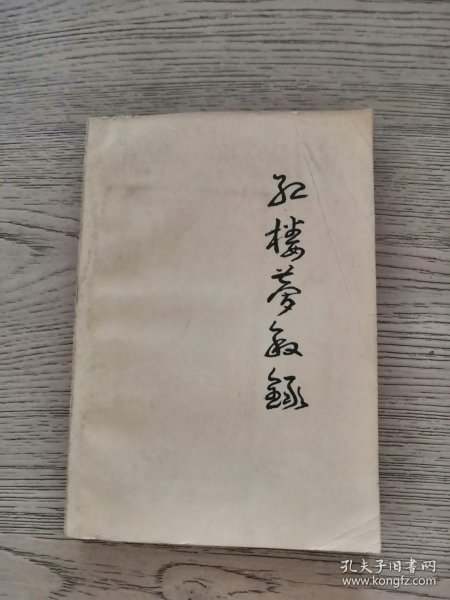 红楼梦叙录
孔夫子旧书网
www.kongfz.com